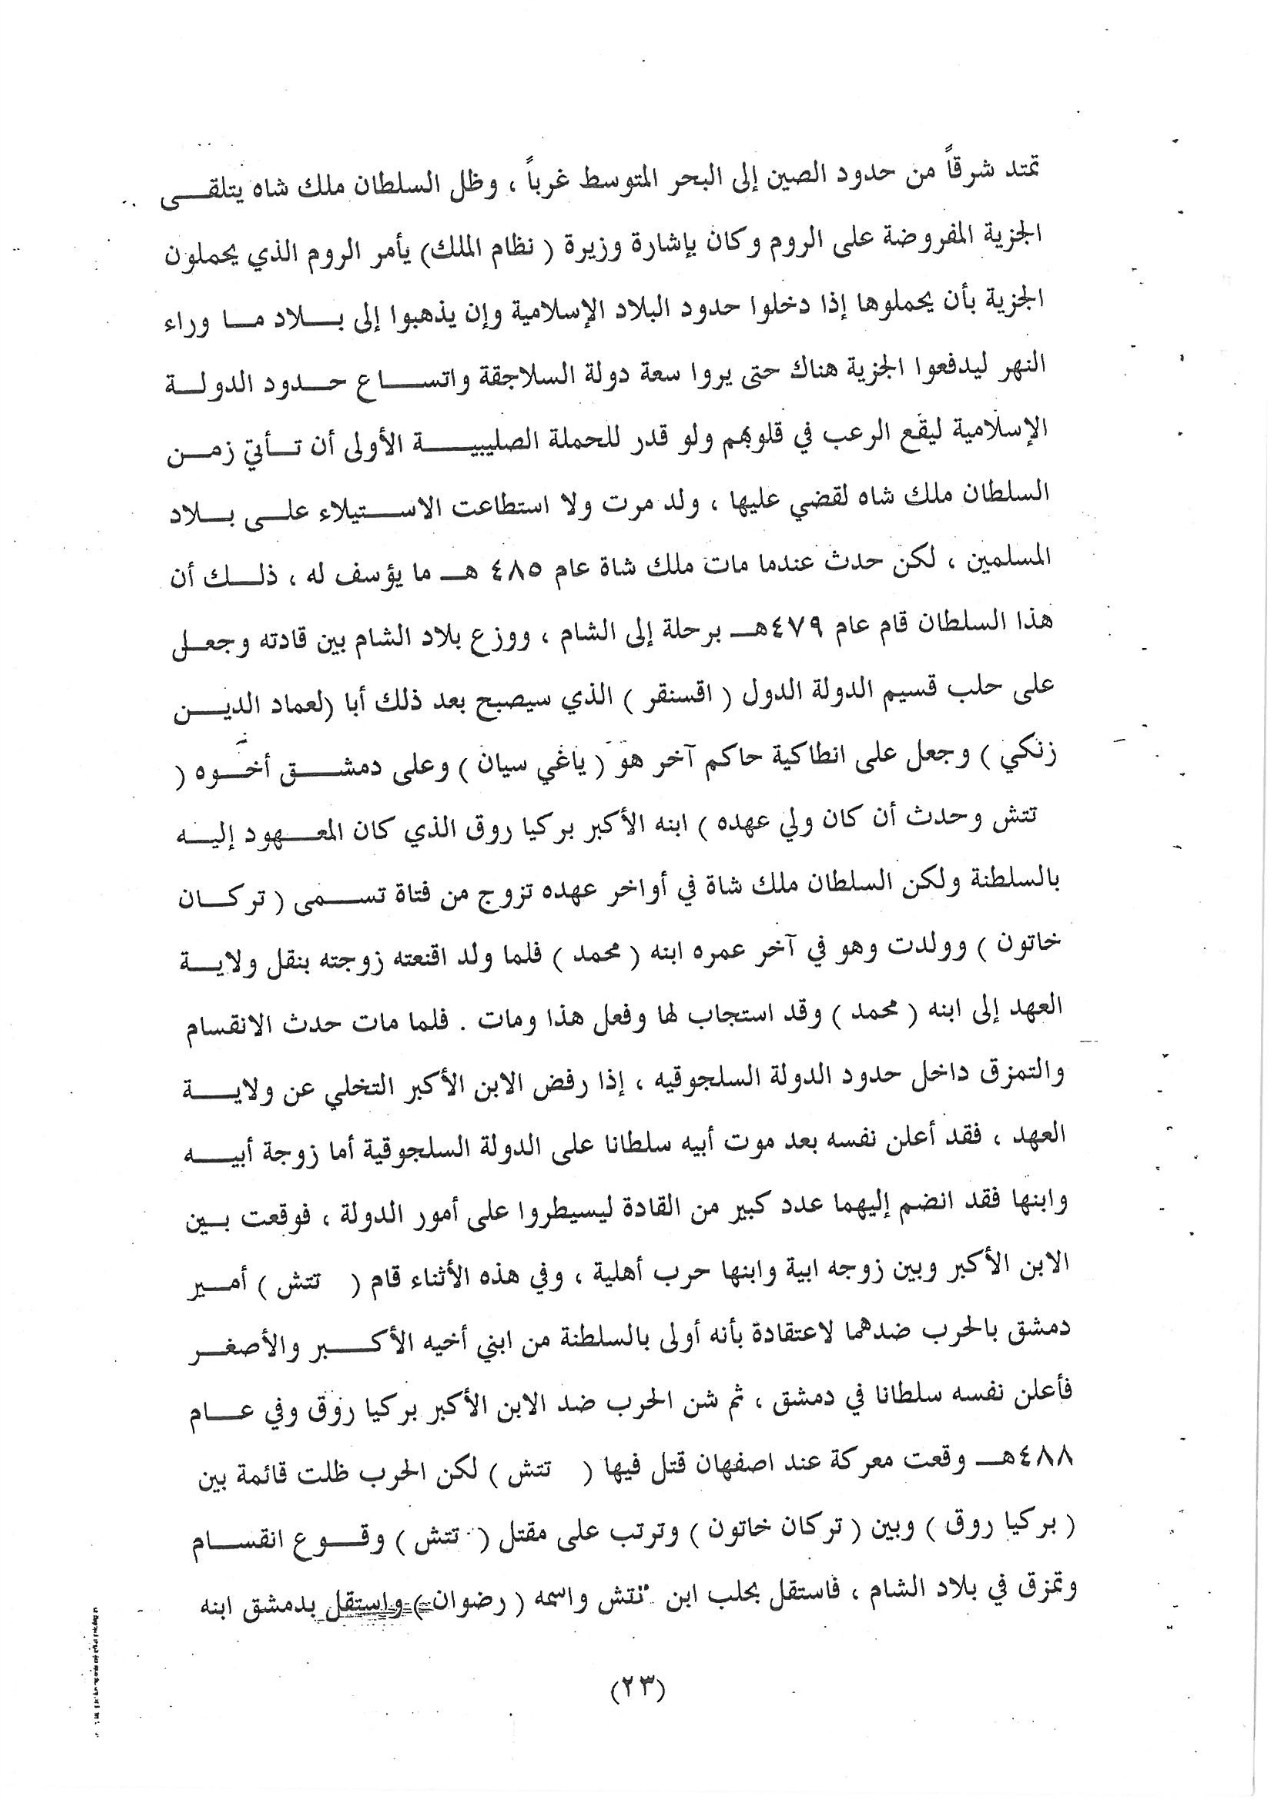 تمتد شرقاً من حدود الصين إلى البحر المتوسط غرباً ، وظل السلطان ملك شاه يتلقـــى
الجزية المفروضة على الروم وكان بإشارة وزيرة ( نظام الملك) يأمر الروم الذي يحملون
الجزية بأن يحملوها إذا دخلوا حدود البلاد الإسلامية وإن يذهبوا إلى بـــلاد مـــا وراء
النهر ليدفعوا الجزية هناك حتى يروا سعة دولة السلاجقة واتســـاع حـــدود الدولـــة
الإسلامية ليقع الرعب في قلوبهم ولو قدر للحملة الصليبيـــة الأولى أن تـــأتي زمـــن
السلطان ملك شاه لقضي عليها ، ولد مرت ولا استطاعت الاســـتيلاء علـــى بـــلاد
المسلمين ، لكن حدث عندما مات ملك شاة عام ٤٨٥ هـــ ما يؤسف له ، ذلـــك أن
هذا السلطان قام عام ٤٧٩هـــ برحلة إلى الشام ، ووزع بلاد الشام بين قادته وجعـــل
على حلب قسيم الدولة الدول ( اقسنقر ) الذي سيصبح بعد ذلك أبا (لعماد الديـــن
زنكي ) وجعل على انطاكية حاكم آخر هو ( ياغي سيان ) وعلى دمشـــق أخـــوه (
تتش وحدث أن كان ولي عهده ) ابنه الأكبر بركيا روق الذي كان المعـــهود إليـــه
بالسلطنة ولكن السلطان ملك شاة في أواخر عهده تزوج من فتاة تســـمى ( تركـــان
خاتون ) وولدت وهو في آخر عمره ابنه ( محمد ) فلما ولد اقنعته زوجته بنقل ولايـــة
العهد إلى ابنه ( محمد ) وقد استجاب لها وفعل هذا ومات . فلما مات حدث الانقسام
والتمزق داخل حدود الدولة السلجوقيه ، إذا رفض الابن الأكبر التخلي عن ولايـــة
العهد ، فقد أعلن نفسه بعد موت أبيه سلطانا على الدولة السلجوقية أما زوجة أبيـــه
وابنها فقد انضم إليهما عدد كبير من القادة ليسيطروا على أمور الدولة ، فوقعت بـــين
الابن الأكبر وبين زوجه ابية وابنها حرب أهلية ، وفي هذه الأثناء قام ( تتش ) أمـــير
دمشق بالحرب ضدهما لاعتقادة بأنه أولى بالسلطنة من ابني أخيه الأكـــبر والأصغـــر
فأعلن نفسه سلطانا في دمشق ، ثم شن الحرب ضد الابن الأكبر بركيا روق وفي عـــام
٤٨٨هـــ وقعت معركة عند اصفهان قتل فيها ( تتش ) لكن الحرب ظلت قائمة بين
( بركيا روق ) وبين ( تركان خاتون ) وترتب على مقتل ( تتش ) وقـــوع انقســـام
وتمزق في بلاد الشام ، فاستقل بحلب ابن تتش واسمه ( رضوان) واستقل بدمشق ابنه
(٢٣)